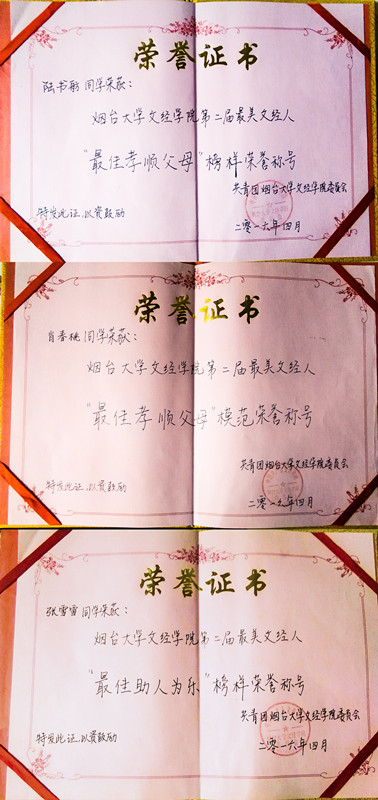 荣誉证书
陆书彤 同学荣获：
烟台大学文经学院第二届最美文经人
"最佳孝顺父母"榜样荣誉称号
共青团烟台大学文经学院委员会
特发此证,以资鼓励
二零一六年四月
荣誉证书
肖春桃 同学荣获：
烟台大学文经学院第二届最美文经人
"最佳孝顺父母"模范荣誉称号
共青团烟台大学文经学院委员会
特发此证,以资鼓励
二零一六年四月
荣誉证书
张雪雷 同学荣获：
烟台大学文经学院第二届最美文经人
"最佳助人为乐"榜样荣誉称号
共青团烟台大学文经学院委员会
特发此证,以资鼓励
二零一六年四月